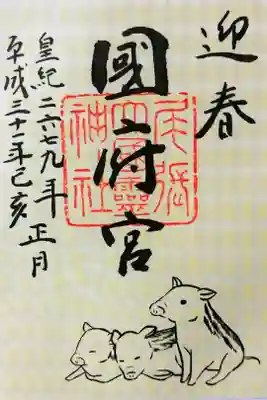 迎春
國府宮
尾張
大國靈
神社
皇紀二六七九年正月
平成三十年己亥